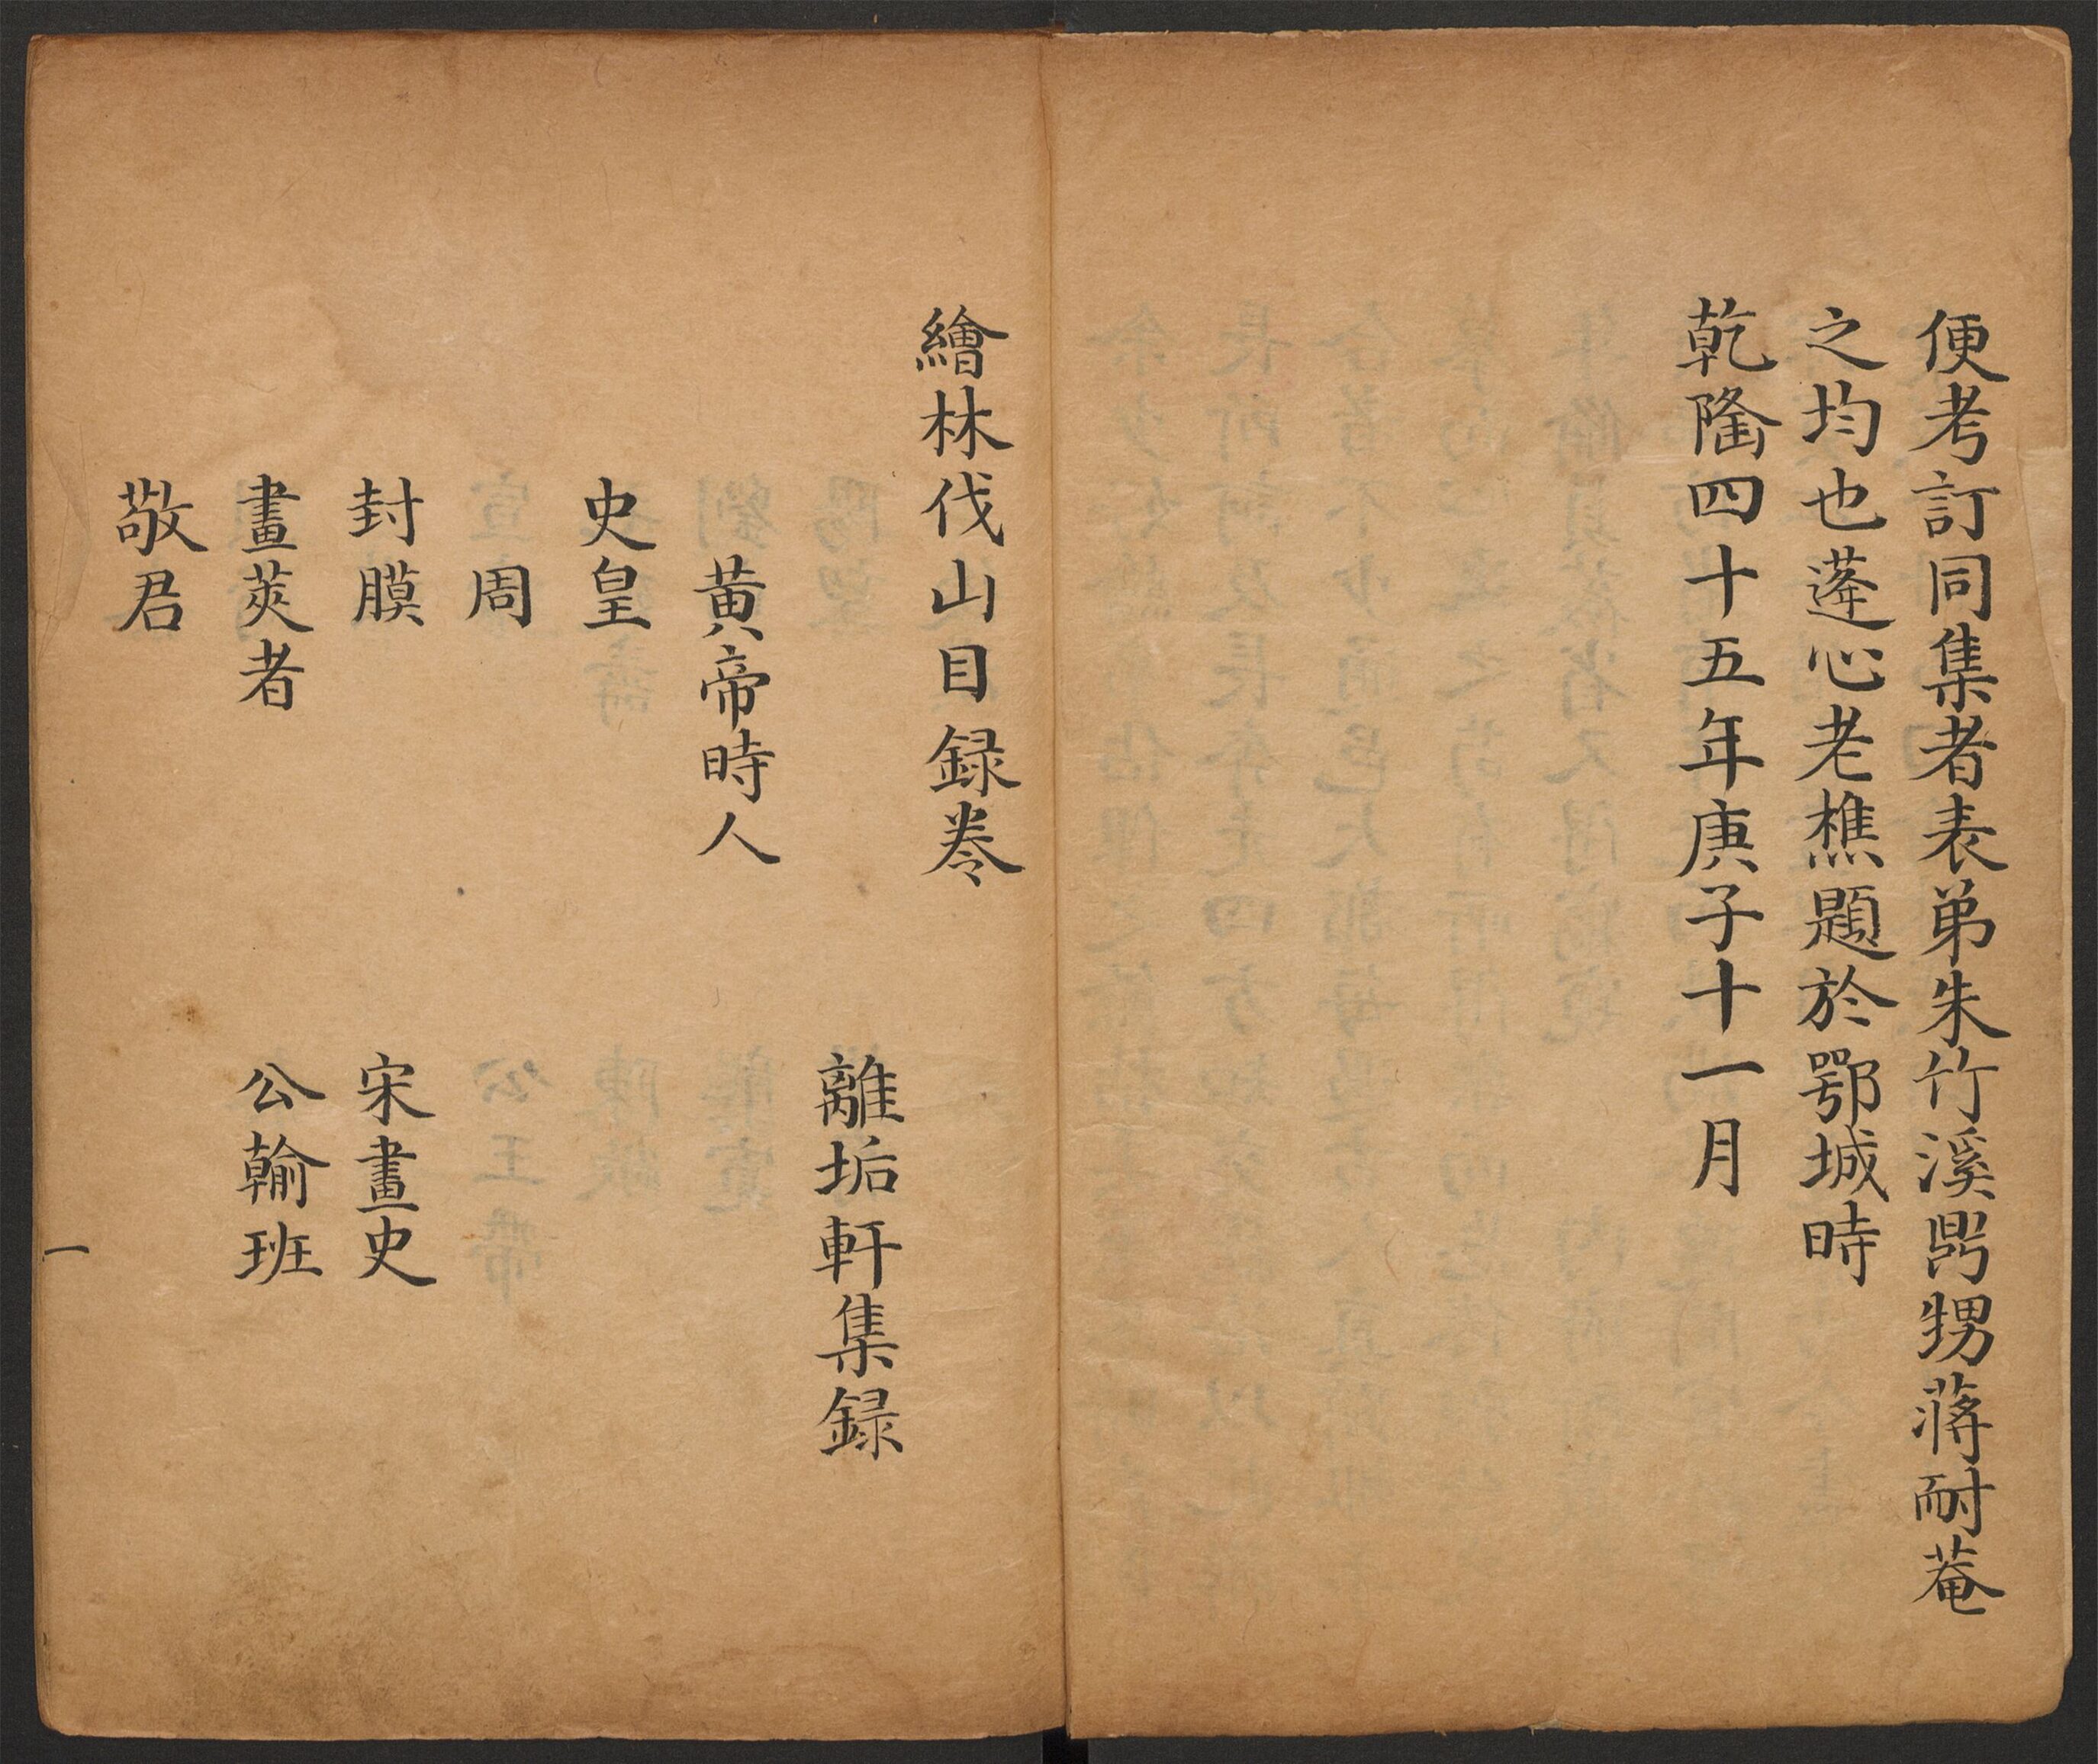 便考訂同集者表弟朱竹溪鹗甥蒋耐菴
之均也蓬心老樵題於鄂城時
乾隆四十五年庚子十一月
繪林伐山目録卷
離垢軒集録
黄帝時人
史皇
周
封膜 宋畫史
畫莢者 公輸班
敬君
一